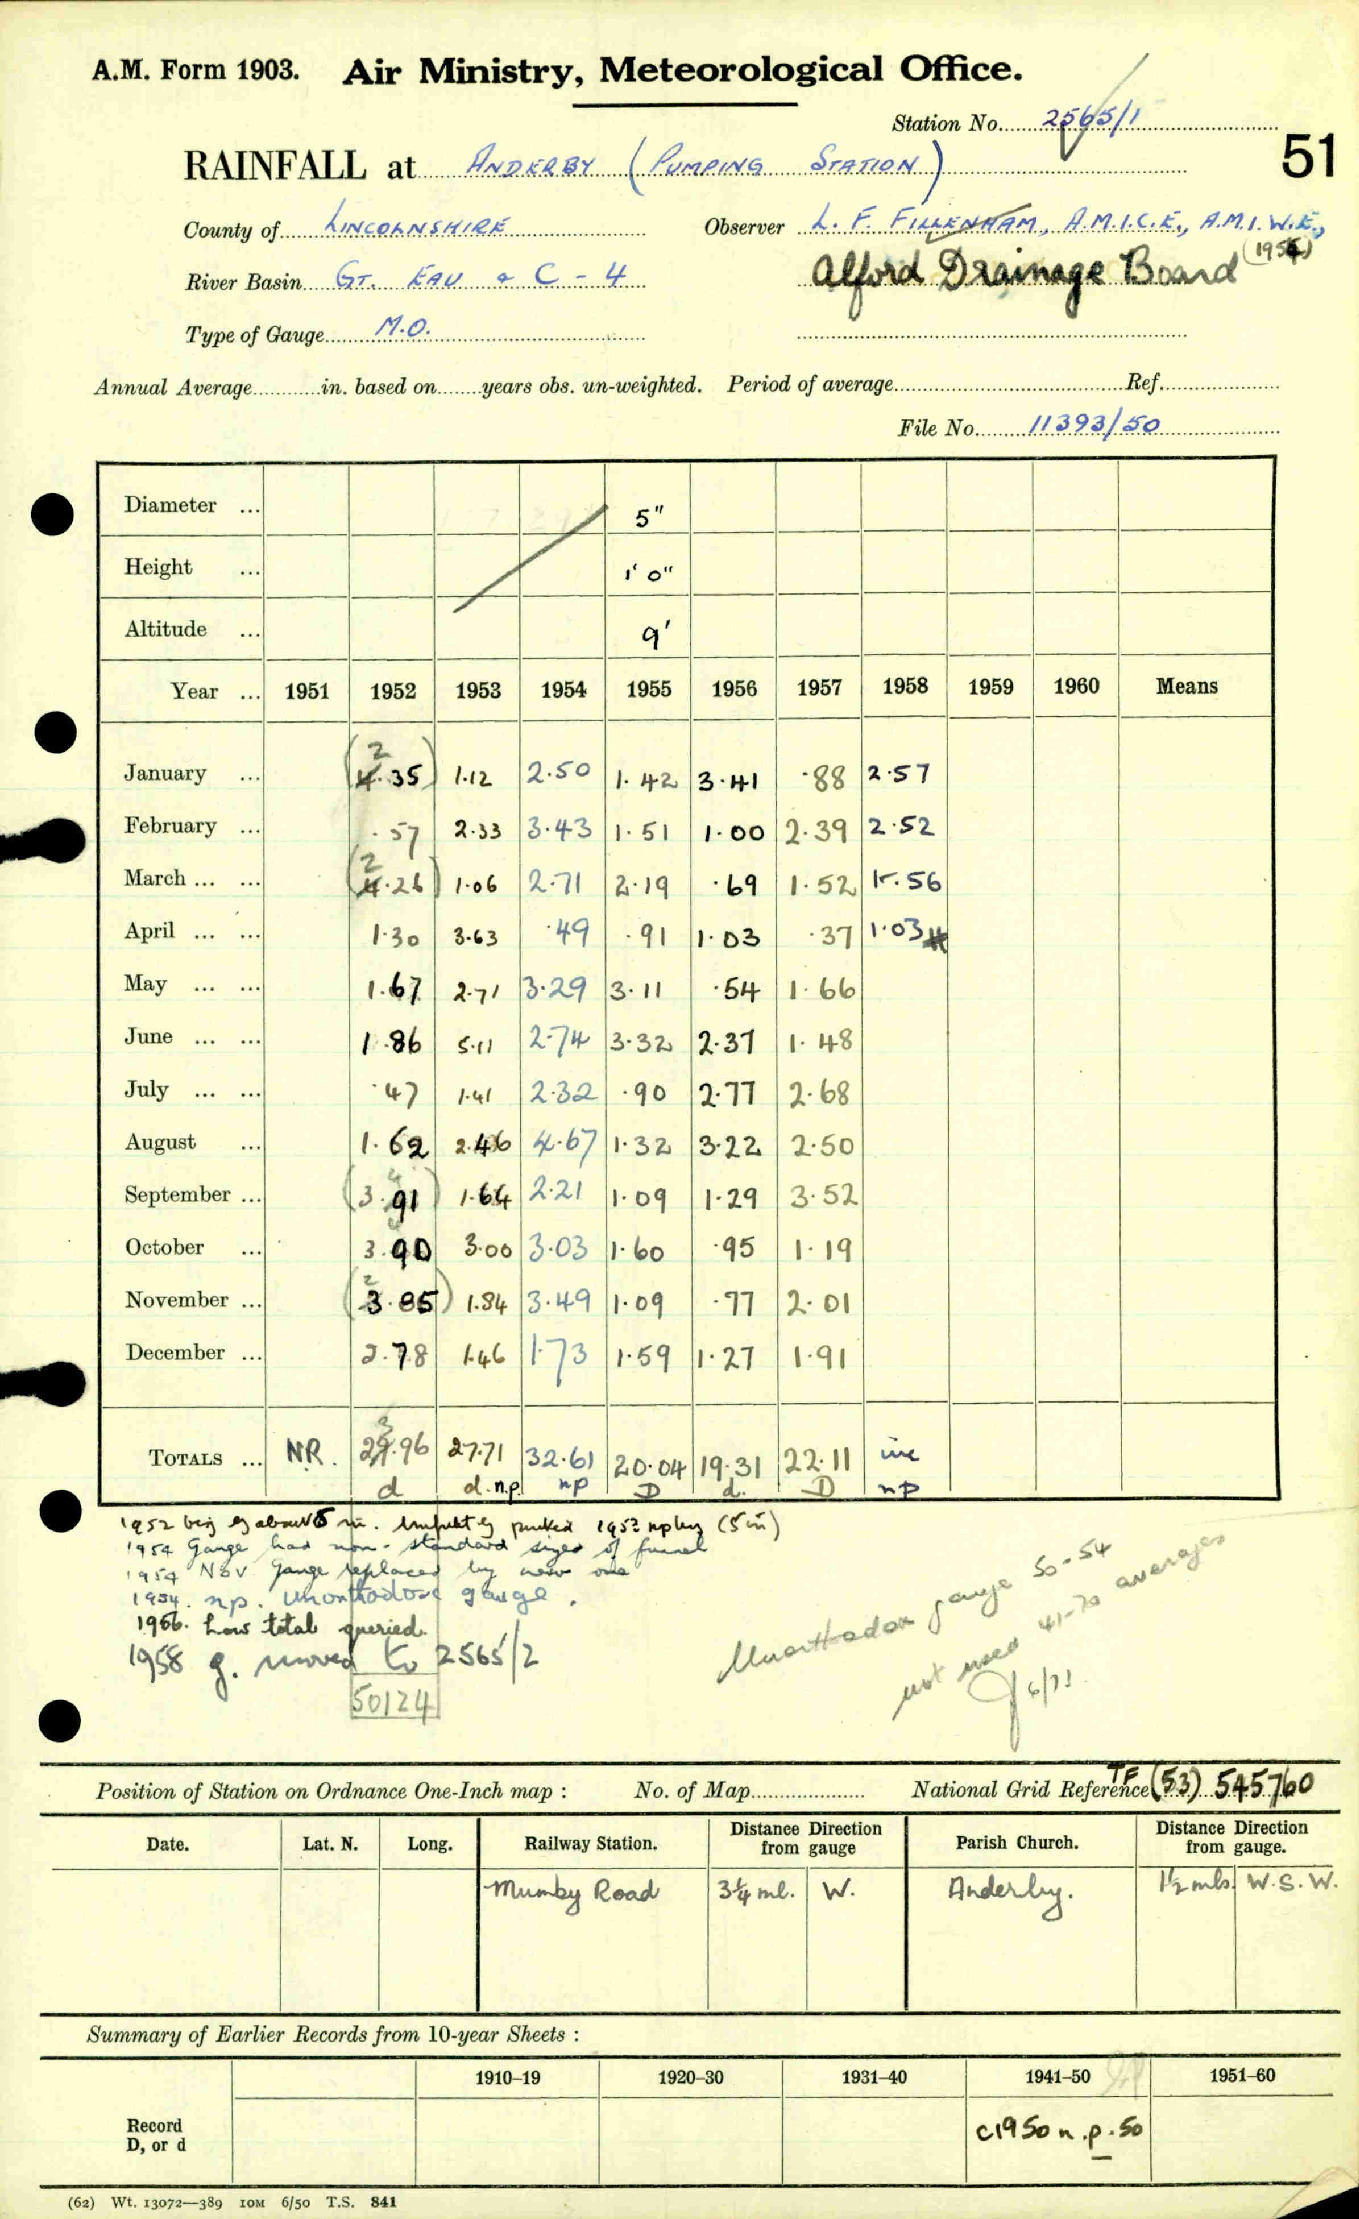 A.M. Form 1903. Air Ministry, Meteorological Office.
Station No. 2565/1
51
RAINFALL at ANDERBY (PUMPING STATION)
County of LINCOLNSHIRE Observer L. F. FILLENHAM, A.M.I.C.E., A.M.I.W.E.,
River Basin GT. EAU & C - 4 Alford Drainage Board (1954)
Type of Gauge M.O.
Annual Average in. based on years obs. un-weighted. Period of average Ref.
File No. 11393/50
Diameter ... 5"
Height ... 1' 0"
Altitude ... 9'
Year ... 1951 1952 1953 1954 1955 1956 1957 1958 1959 1960 Means
January ... (2 4.35) 1.12 2.50 1.42 3.41 .88 2.57
February ... .57 2.33 3.43 1.51 1.00 2.39 2.52
March ... ... (2 4.26) 1.06 2.71 2.19 .69 1.52 1.56
April ... ... 1.30 3.63 .49 .91 1.03 .37 1.03
May ... ... 1.67 2.71 3.29 3.11 .54 1.66
June ... ... 1.86 5.11 2.74 3.32 2.37 1.48
July ... ... .47 1.41 2.32 .90 2.77 2.68
August ... 1.62 2.46 4.67 1.32 3.22 2.50
September ... (3.91) 1.64 2.21 1.09 1.29 3.52
October ... 3.90 3.00 3.03 1.60 .95 1.19
November ... (2 3.85) 1.84 3.49 1.09 .77 2.01
December ... 2.78 1.46 1.73 1.59 1.27 1.91
TOTALS ... N.R. 29.96 27.71 32.61 20.04 19.31 22.11 inc
d d. n.p. np D d. D np
1952 by about 5 in. 1952 (5 in)
1954 Gauge had non-standard sizes of funnel
1954 Nov Gauge replaced by new one
1954. np. Unorthodox gauge.
1956. Low total queried.
1958 g. moved to 2565/2
50124
Unorthodox gauge 50-54
not used 41-70 averages
6/71
Position of Station on Ordnance One-Inch map : No. of Map National Grid Reference TF (53) 545760
Date. Lat. N. Long. Railway Station. Distance from gauge Direction Parish Church. Distance from gauge. Direction
Mumby Road 3¼ ml. W. Anderby. 1½ mls. W.S.W.
Summary of Earlier Records from 10-year Sheets :
1910–19 1920–30 1931–40 1941–50 1951–60
Record
D, or d c1950 n.p. 50
(62) Wt. 13072—389 10M 6/50 T.S. 841